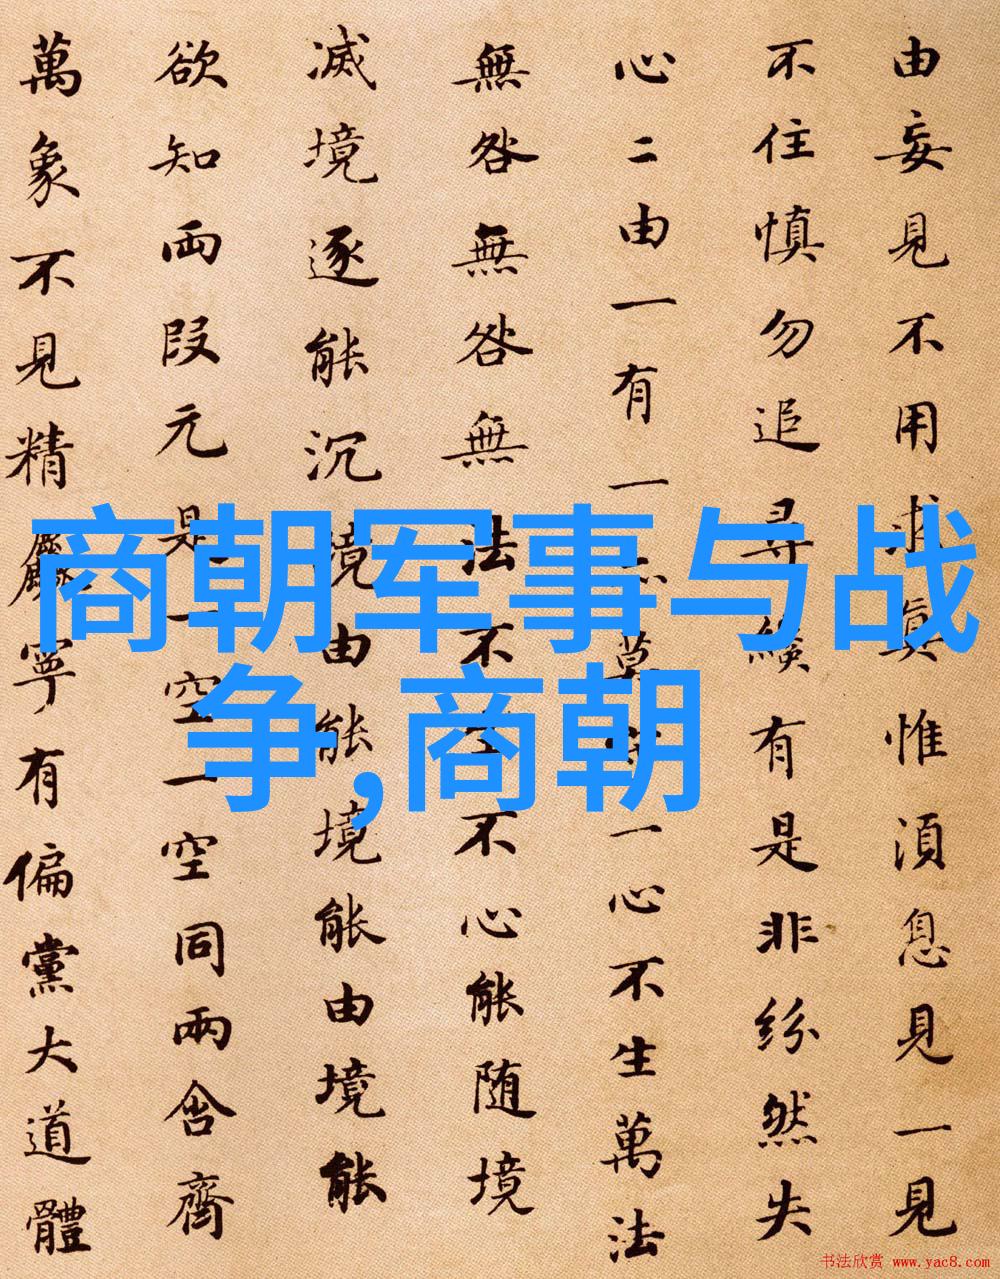 由妄見不用求真惟湏息見一見
不住慎勿追尋纔有是非紛然失
心二由一有一亦莫守一心不生萬法
無咎無咎無法不生不心能随境
滅境逐能沉境由能境能由境能
欲知両段元是一空一空同兩含齊
萬象不見精麤寧有偏黨大道體
商朝军事与战
争,商朝
书法欣赏 www.yac8.com